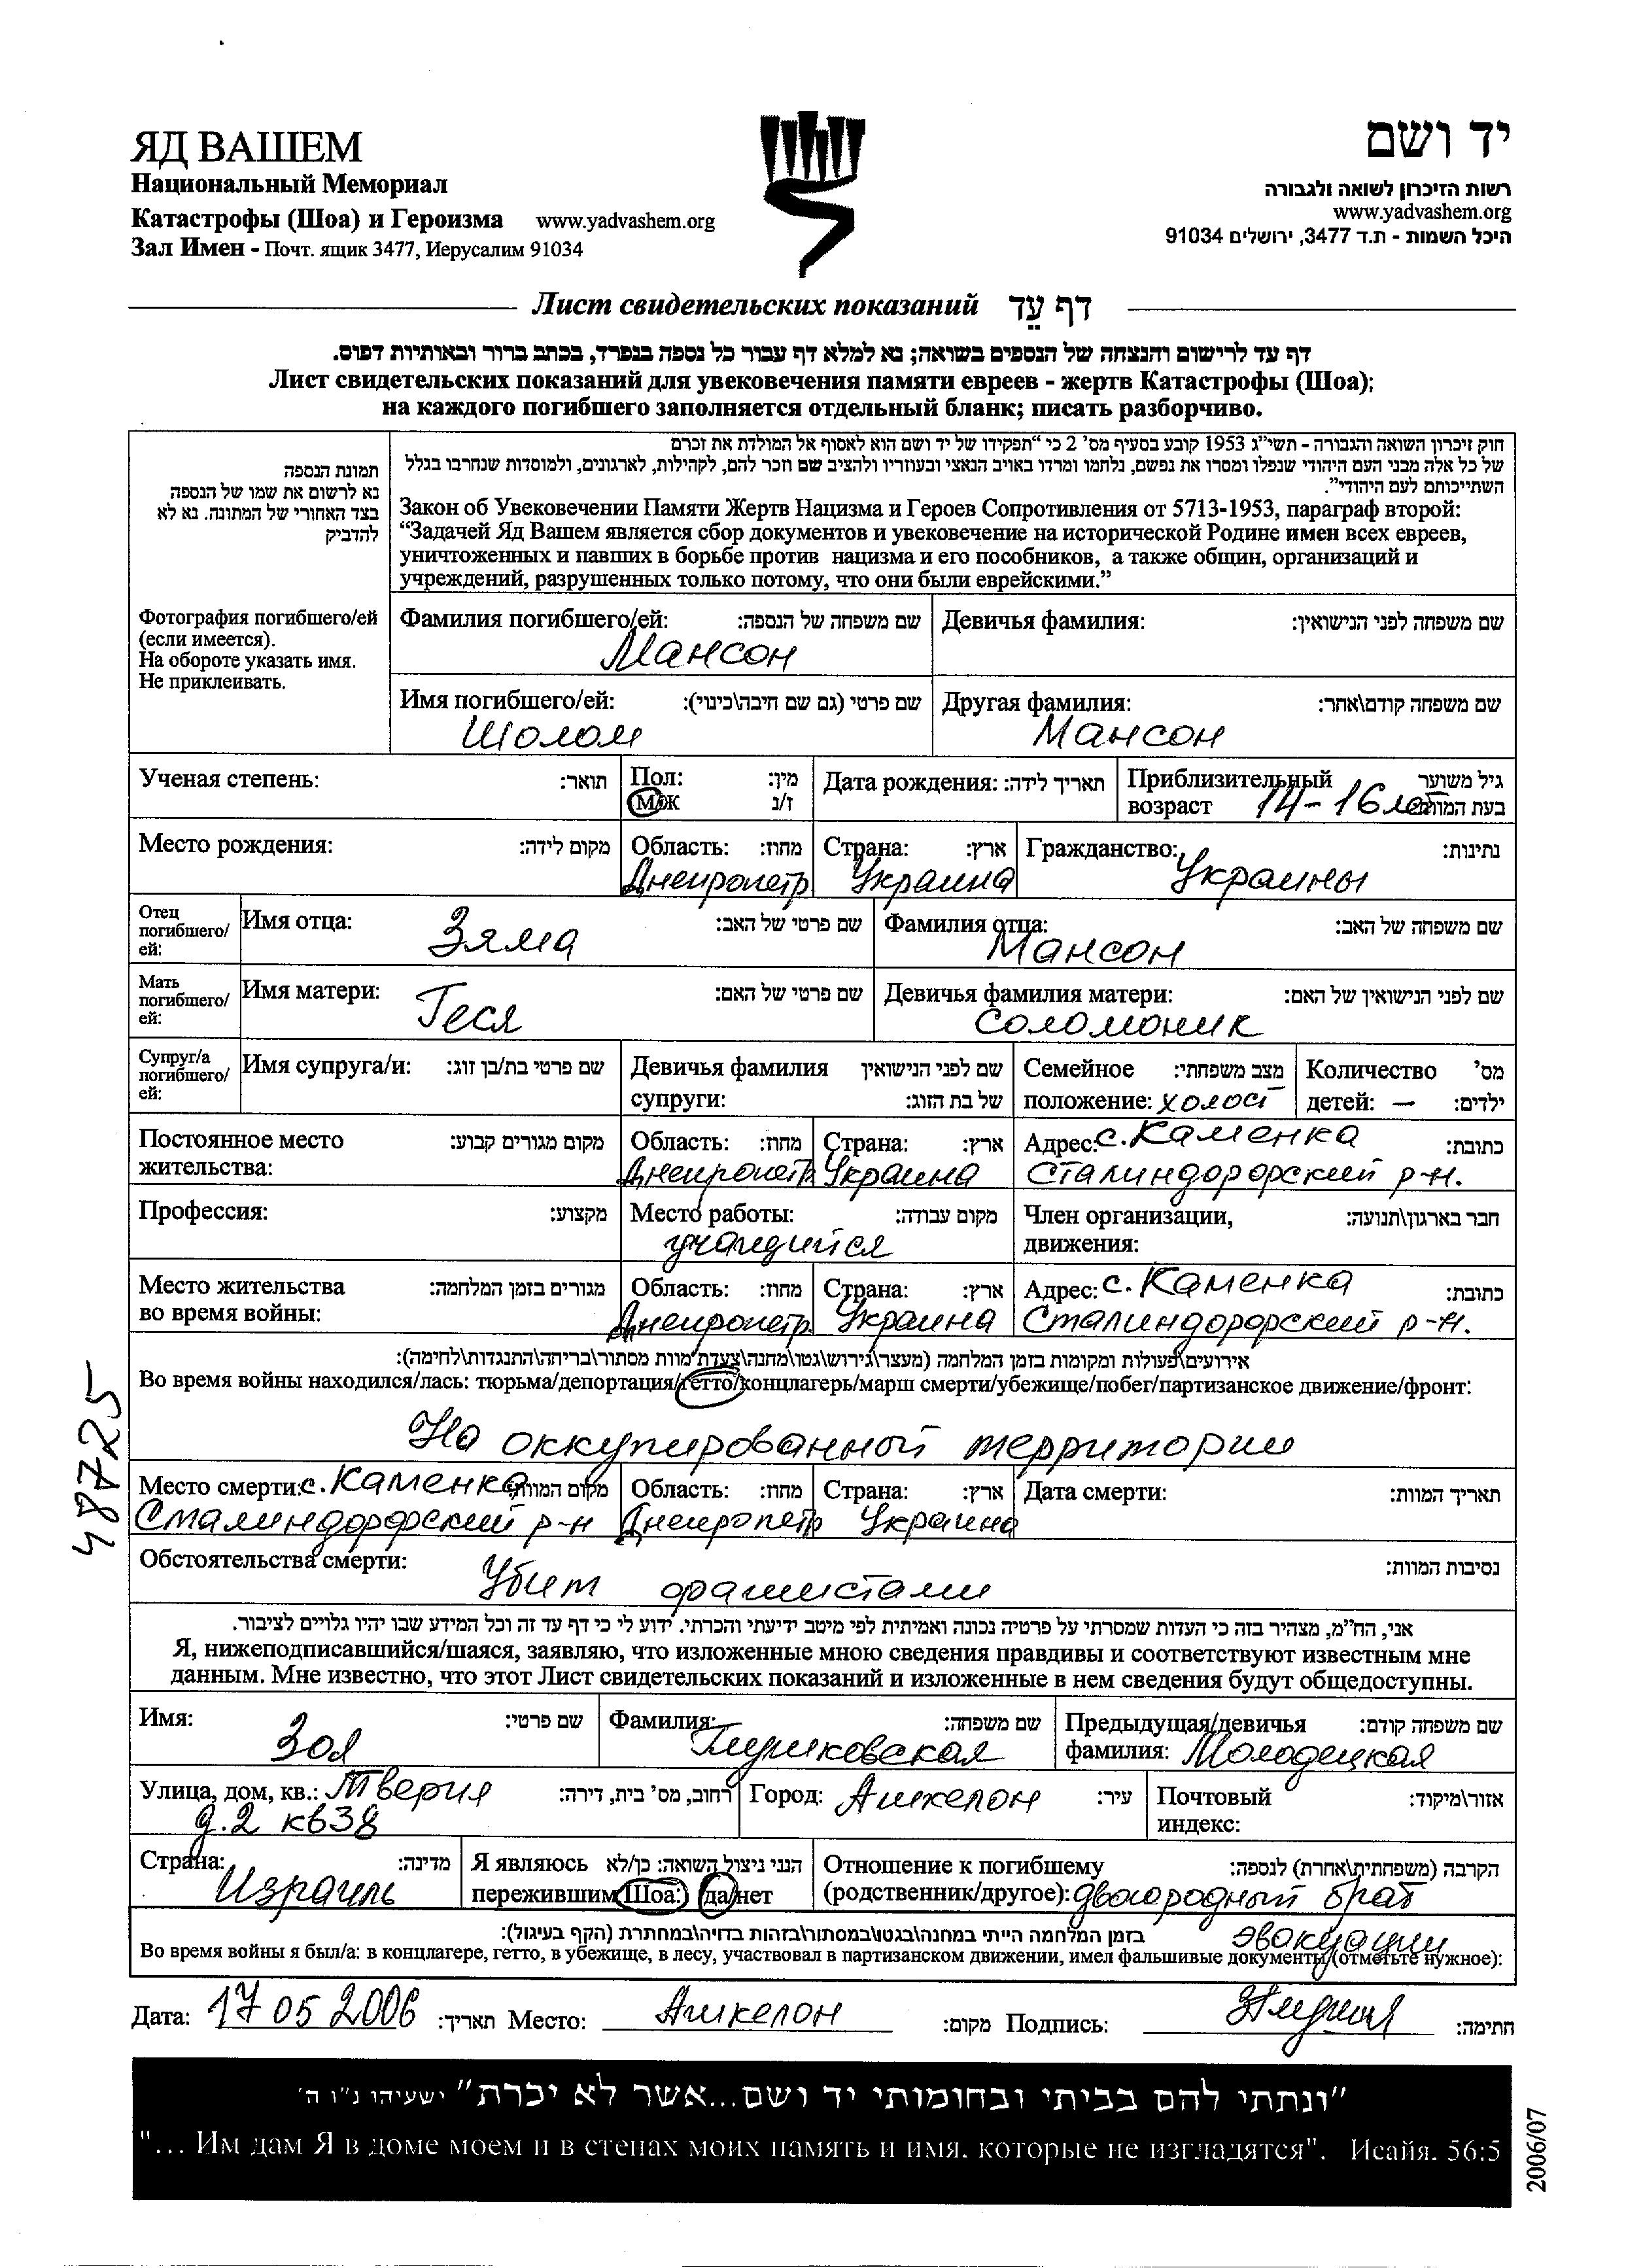 ЯД ВАШЕМ
Национальный Мемориал
Катастрофы (Шоа) и Героизма www.yadvashem.org
Зал Имен - Почт. ящик 3477, Иерусалим 91034
יד ושם
רשות הזיכרון לשואה ולגבורה
www.yadvashem.org
היכל השמות - ת.ד 3477, ירושלים 91034
Лист свидетельских показаний דף עֵד
דף עד לרישום והנצחה של הנספים בשואה; נא למלא דף עבור כל נספה בנפרד, בכתב ברור ובאותיות דפוס.
Лист свидетельских показаний для увековечения памяти евреев - жертв Катастрофы (Шоа);
на каждого погибшего заполняется отдельный бланк; писать разборчиво.
תמונת הנספה
נא לרשום את שמו של הנספה
בצד האחורי של התמונה. נא לא
להדביק
Фотография погибшего/ей
(если имеется).
На обороте указать имя.
Не приклеивать.
חוק זיכרון השואה והגבורה - תשי"ג 1953 קובע בסעיף מס' 2 כי "תפקידו של יד ושם הוא לאסוף אל המולדת את זכרם
של כל אלה מבני העם היהודי שנפלו ומסרו את נפשם, נלחמו ומרדו באויב הנאצי ובעוזריו ולהציב שם וזכר להם, לקהילות, לארגונים, ולמוסדות שנחרבו בגלל
השתייכותם לעם היהודי".
Закон об Увековечении Памяти Жертв Нацизма и Героев Сопротивления от 5713-1953, параграф второй:
"Задачей Яд Вашем является сбор документов и увековечение на исторической Родине имен всех евреев,
уничтоженных и павших в борьбе против нацизма и его пособников, а также общин, организаций и
учреждений, разрушенных только потому, что они были еврейскими."
Фамилия погибшего/ей: שם משפחה של הנספה: Девичья фамилия: שם משפחה לפני הנישואין:
Мансон
Имя погибшего/ей: שם פרטי (גם שם חיבה\כינוי): Другая фамилия: שם משפחה קודם\אחר:
Шолом Мансон
Ученая степень: תואר: Пол: מין: Дата рождения: תאריך לידה: Приблизительный גיל משוער
М/Ж ז/נ возраст 14-16 лет בעת המוות:
Место рождения: מקום לידה: Область: מחוז: Страна: ארץ: Гражданство: נתינות:
Днепропетр Украина Украины
Отец
погибшего/
ей:
Имя отца: Зяма שם פרטי של האב: Фамилия отца: Мансон שם משפחה של האב:
Мать
погибшего/
ей:
Имя матери: Геся שם פרטי של האם: Девичья фамилия матери: שם לפני הנישואין של האם:
Соломоник
Супруг/а
погибшего/
ей:
Имя супруга/и: שם פרטי בת/בן זוג: Девичья фамилия שם לפני הנישואין Семейное מצב משפחתי: Количество מס'
супруги: של בת הזוג: положение: холост детей: – ילדים:
Постоянное место מקום מגורים קבוע: Область: מחוז: Страна: ארץ: Адрес: с. Каменка כתובת:
жительства: Днепропетр Украина Сталиндорфский р-н.
Профессия: מקצוע: Место работы: מקום עבודה: Член организации, חבר בארגון\תנועה:
учащийся движения:
Место жительства מגורים בזמן המלחמה: Область: מחוז: Страна: ארץ: Адрес: с. Каменка כתובת:
во время войны: Днепропетр. Украина Сталиндорфский р-н.
אירועים\פעולות ומקומות בזמן המלחמה (מעצר\גירוש\גטו\מחנה\צעדת מוות מסתור\בריחה\התנגדות\לחימה):
Во время войны находился/лась: тюрьма/депортация/гетто/концлагерь/марш смерти/убежище/побег/партизанское движение/фронт:
На оккупированной территории
Место смерти: с. Каменка מקום המוות: Область: מחוז: Страна: ארץ: Дата смерти: תאריך המוות:
Сталиндорфский р-н Днепропетр Украина
Обстоятельства смерти: נסיבות המוות:
Убит фашистами
אני, הח"מ, מצהיר בזה כי העדות שמסרתי על פרטיה נכונה ואמיתית לפי מיטב ידיעתי והכרתי. ידוע לי כי דף עד זה וכל המידע שבו יהיו גלויים לציבור.
Я, нижеподписавшийся/шаяся, заявляю, что изложенные мною сведения правдивы и соответствуют известным мне
данным. Мне известно, что этот Лист свидетельских показаний и изложенные в нем сведения будут общедоступны.
Имя: שם פרטי: Фамилия: שם משפחה: Предыдущая/девичья שם משפחה קודם:
Зоя фамилия: Молодецкая
Улица, дом, кв.: Тверия רחוב, מס' בית, דירה: Город: Ашкелон עיר: Почтовый אזור\מיקוד:
д.2 кв38 индекс:
Страна: מדינה: Я являюсь הנני ניצול השואה: כן/לא Отношение к погибшему הקרבה (משפחתית\אחרת) לנספה:
Израиль пережившим Шоа: да/нет (родственник/другое): двоюродный брат
בזמן המלחמה הייתי במחנה\בגטו\במסתור\בזהות בדויה\במחתרת (הקף בעיגול): эвакуации
Во время войны я был/а: в концлагере, гетто, в убежище, в лесу, участвовал в партизанском движении, имел фальшивые документы (отметьте нужное):
Дата: 17 05 2006 תאריך: Место: Ашкелон מקום: Подпись: חתימה:
"ונתתי להם בביתי ובחומותי יד ושם...אשר לא יכרת" ישעיהו נ"ו ה'
"... Им дам Я в доме моем и в стенах моих память и имя. которые не изгладятся". Исайя. 56:5
48725
2006/07